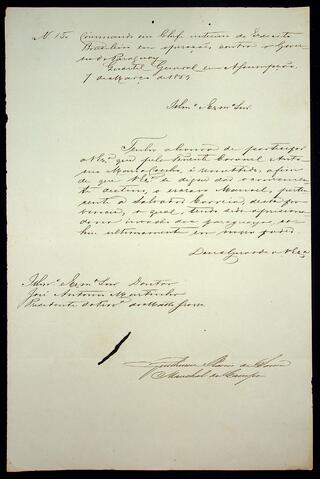 N. 150 Commando em Chefe interino do Exercito
Brasileiro em operações contra o Gover
no do Paraguay
Quartel General em Assumpção,
7 de Março de 1869.
Illmo. e Exmo. Snr.
Tenho a honra de participar
a V. Exa. que pelo Tenente Coronel Anto
nio Maria Coelho, é remettido, afim
de que V. Exa. se digne dar conveniente
destino, o escravo Manoel, perten
cente a Salvador Correia, desta pro
vincia, o qual, tendo sido aprisiona
do na invasão dos paraguayos, ca
hiu ultimamente em nosso poder.
Deus Guarde a V. Exa.
Illmo. e Exmo. Snr. Doutor
José Antonio Murtinho
Presidente de Matto Grosso
Guilherme Xavier de Souza
Marechal de Campo